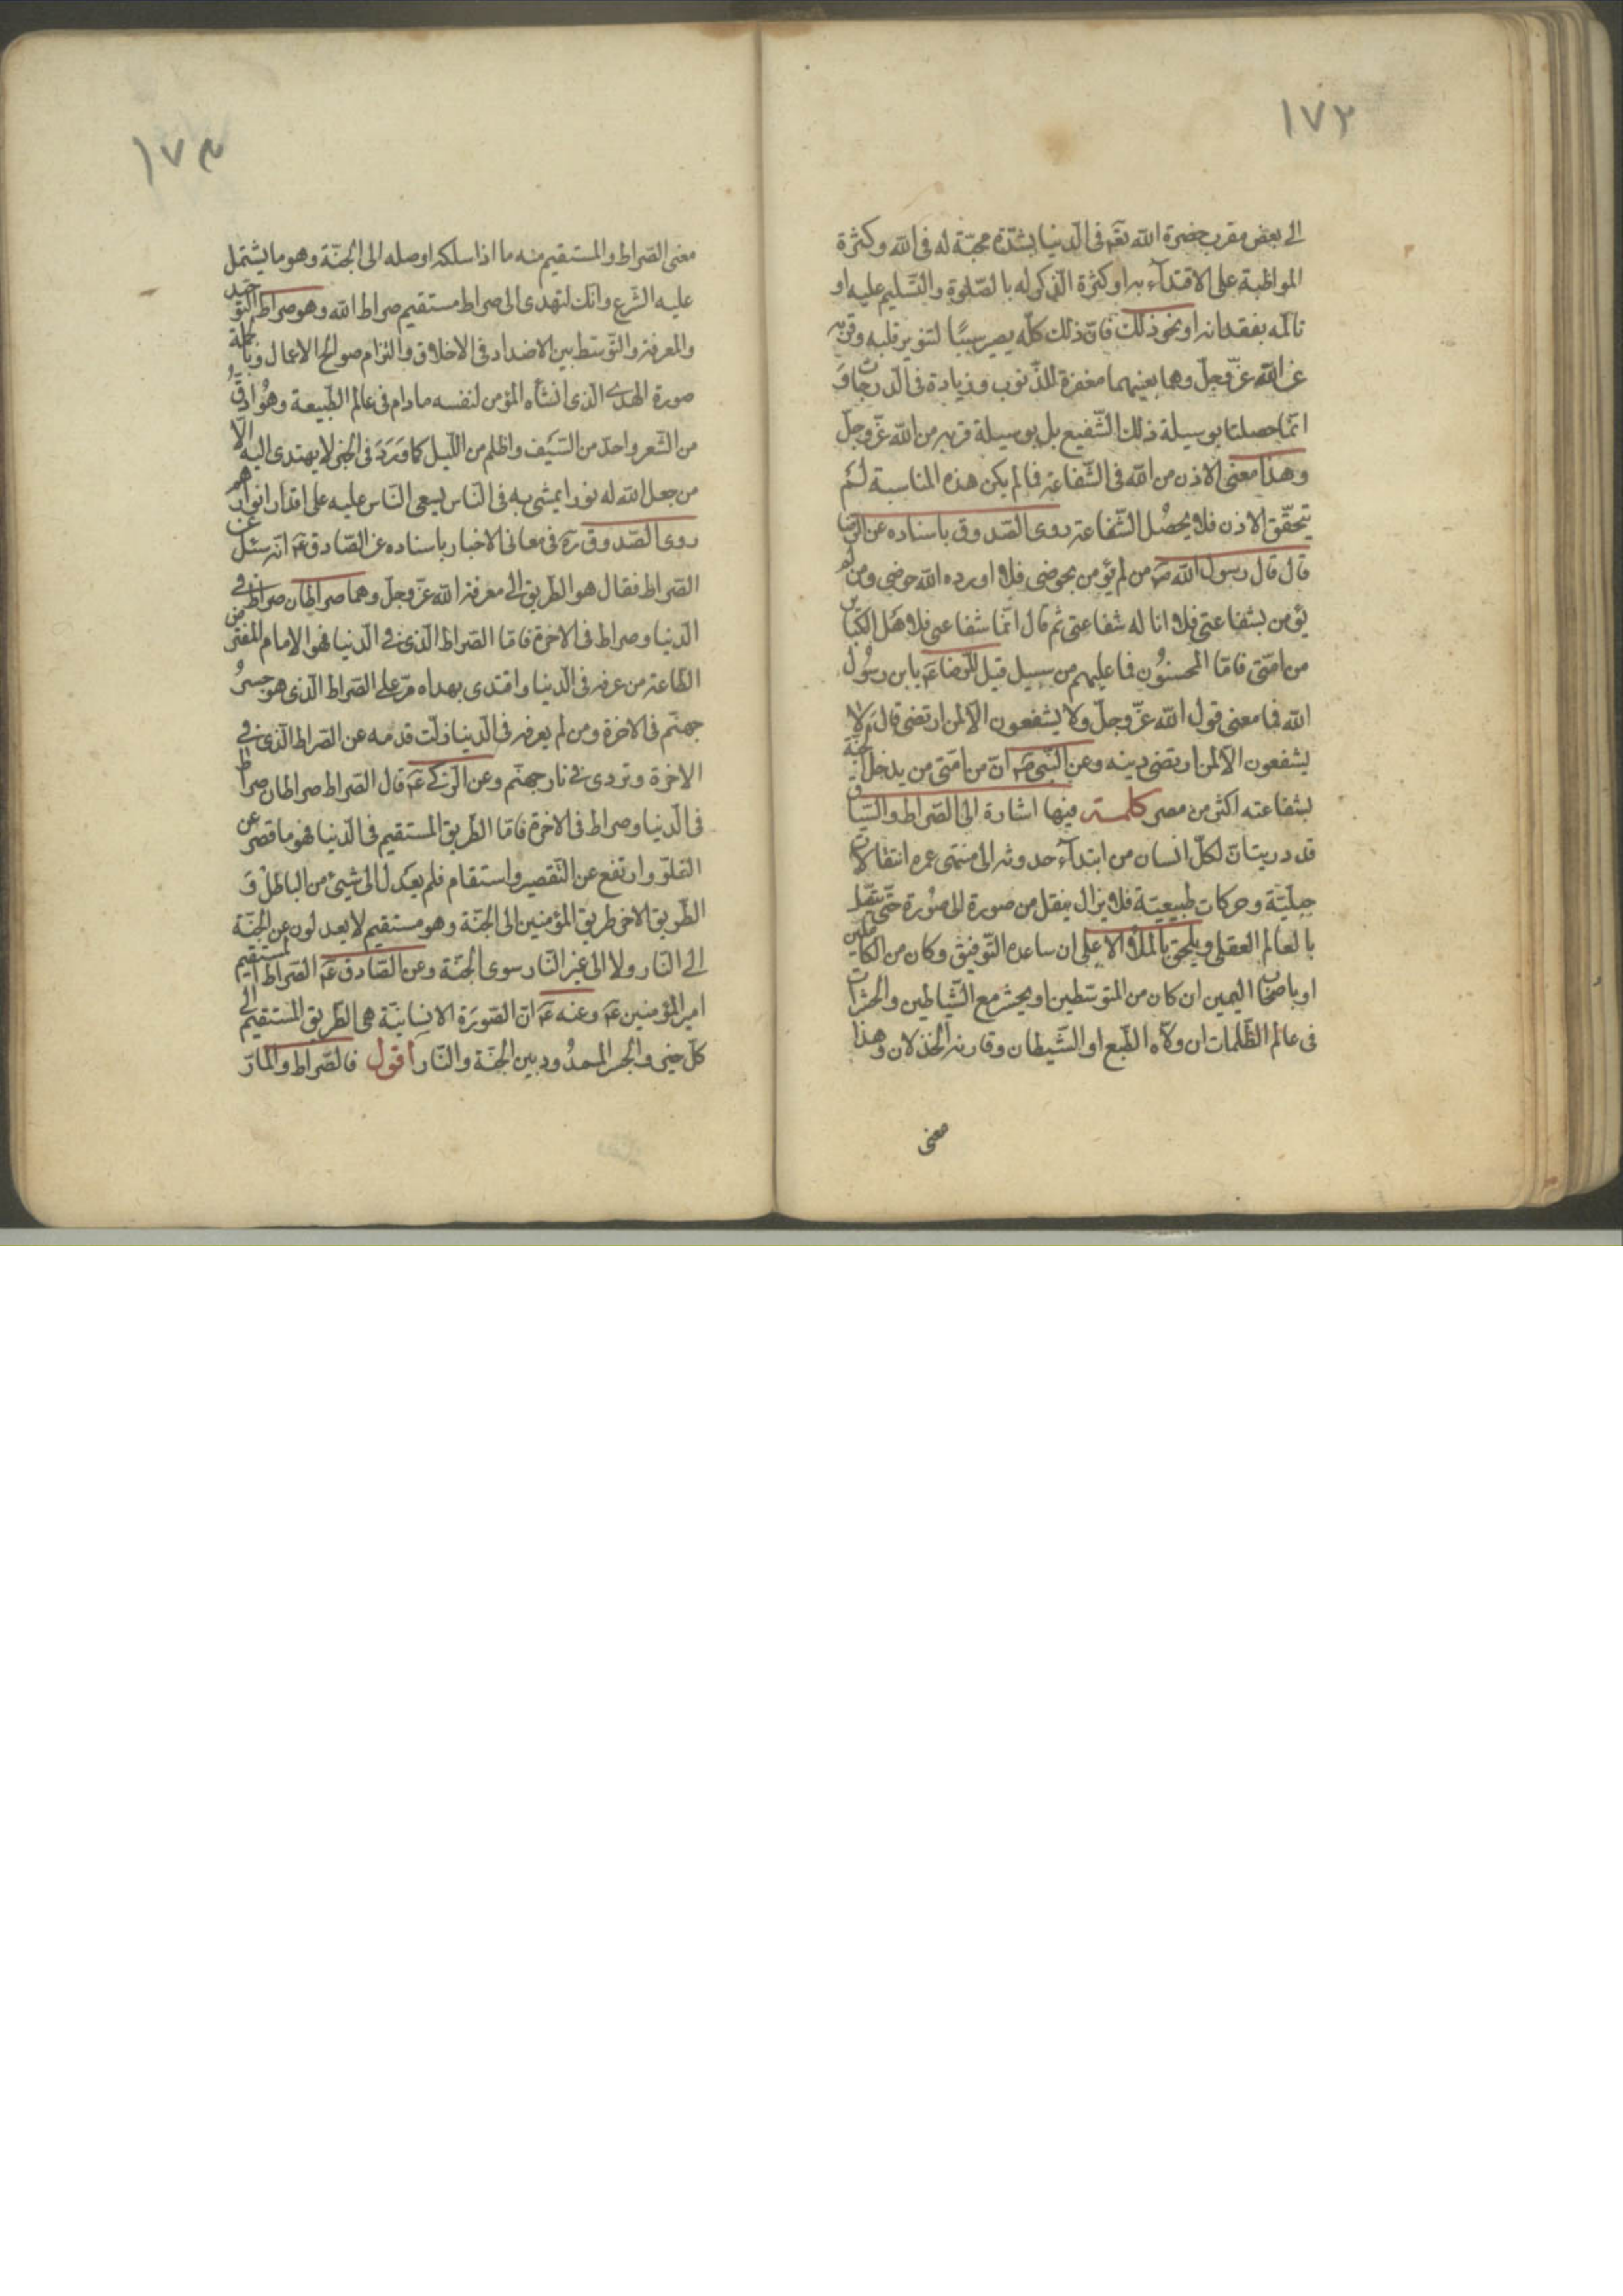 ١٧٣
الى بعض مقربى حضرة الله تعم فى الدنيا بشدّة محبّة له فى الله وكثرة
المواظبة على الاقتدآء به او كثرة الذكر له بالصّلوة والتسليم عليه او
تالمه بفقدانه او نحو ذلك فانّ ذلك كلّه يصير سببًا لتنوير قلبه وقربه
عن الله عزّ وجلّ وهما بعينهما مغفرة للذّنوب وزيادة فى الدّرجات و
انمّا حصلتا بوسيلة ذلك الشّفيع بل بوسيلة قربه من الله عزّ وجلّ
وهذا معنى الاذن من الله فى الشّفاعة فما لم يكن هذه المناسبة لم
يتحقّق الاذن فلا يحصُل الشّفاعة روى الصّدوق باسناده عن الرّضا
قال قال رسول الله صم من لم يؤمن بحوضى فلا اورده الله حوضى ومن لم
يؤمن بشفاعتى فلا اناله شفاعتى ثم قال انمّا شفاعتى لاهل الكبائر
من امّتى فامّا المحسنوُن فما عليهم من سبيل قيل للرّضا عم يابن رسوُل
الله فما معنى قول الله عزّ وجلّ ولا يشفعون الّا لمن ارتضى قال لا
يشفعون الّا لمن ارتضى دينه وعن النّبى صم انّ من امّتى من يدخل الجنّة
بشفاعته اكثر من مصر كلمة فيها اشارة الى الصّراط والسّياق
قد دريت انّ لكلّ انسان من ابتدآء حدوثه الى منتهى عمره انتقالات
جبليّة وحركات طبيعيّة فلا يزال ينقل من صورة الى صوُرة حتّى يتّصل
بالعالم العقلى ويلحق بالملأ الاعلى ان ساعده التّوفيق وكان من الكاملين
او باصحاب اليمين ان كان من المتوسّطين او يحشر مع الشّياطين والحشرات
فى عالم الظّلمات ان ولّاه الطّبع او الشّيطان وقارنه الخذلان وهذا
معنى
١٧٤
معنى الصّراط والمستقيم منه ما اذا سلكه اوصله الى الجنّة وهو ما يشتمل
عليه الشّرع وانك لتهدى الى صراط مستقيم صراط الله وهو صراط التّوحيد
والمعرفة والتّوسّط بين الاضداد فى الاخلاق والتزام صوالح الاعمال وبالجملة
صورة الهدى الذى انشأه المؤمن لنفسه مادام فى عالم الطّبيعة وهوُ ادقّ
من الشّعر واحدّ من السّيف واظلم من اللّيل كما وَرَدَ فى الخبر لا يهتدى اليه الّا
من جعل الله له نورا يمشى به فى النّاس يسعى النّاس عليه على اقدار انوارهم
روى الصّدوق ره فى معانى الاخبار باسناده عن الصّادق عم انّه سئل عن
الصّراط فقال هو الطّريق الى معرفة الله عزّ وجلّ وهما صراطان صراط فى
الدّنيا وصراط فى الاخرة فامّا الصّراط الّذى فى الدّنيا فهو الامام المفترض
الطّاعة من عرفه فى الدّنيا واقتدى بهداه مرّ على الصّراط الّذى هو جسرُ
جهنّم فى الاخرة ومن لم يعرفه فى الدّنيا زلّت قدمه عن الصّراط الّذى فى
الاخرة وتردى فى نار جهنّم وعن الزّكى عم قال الصّراط صراطان صراط
فى الدّنيا وصراط فى الاخرة فامّا الطّريق المستقيم فى الدّنيا فهو ما قصر عن
الغلوّ وارتفع عن التّقصير واستقام فلم يعدل الى شىء من الباطل و
الطّريق الاخر طريق المؤمنين الى الجنّة وهو مستقيم لا يعدلون عن الجنّة
الى النّار ولا الى غير النّار سوى الجنّة وعن الصّادق عم الصّراط المستقيم
امير المؤمنين عم وعنه عم انّ الصّورَة الانسانيّة هى الطّريق المستقيم الى
كلّ خير والجسر الممدُود بين الجنّة والنّار اقول فالصّراط والمارّ